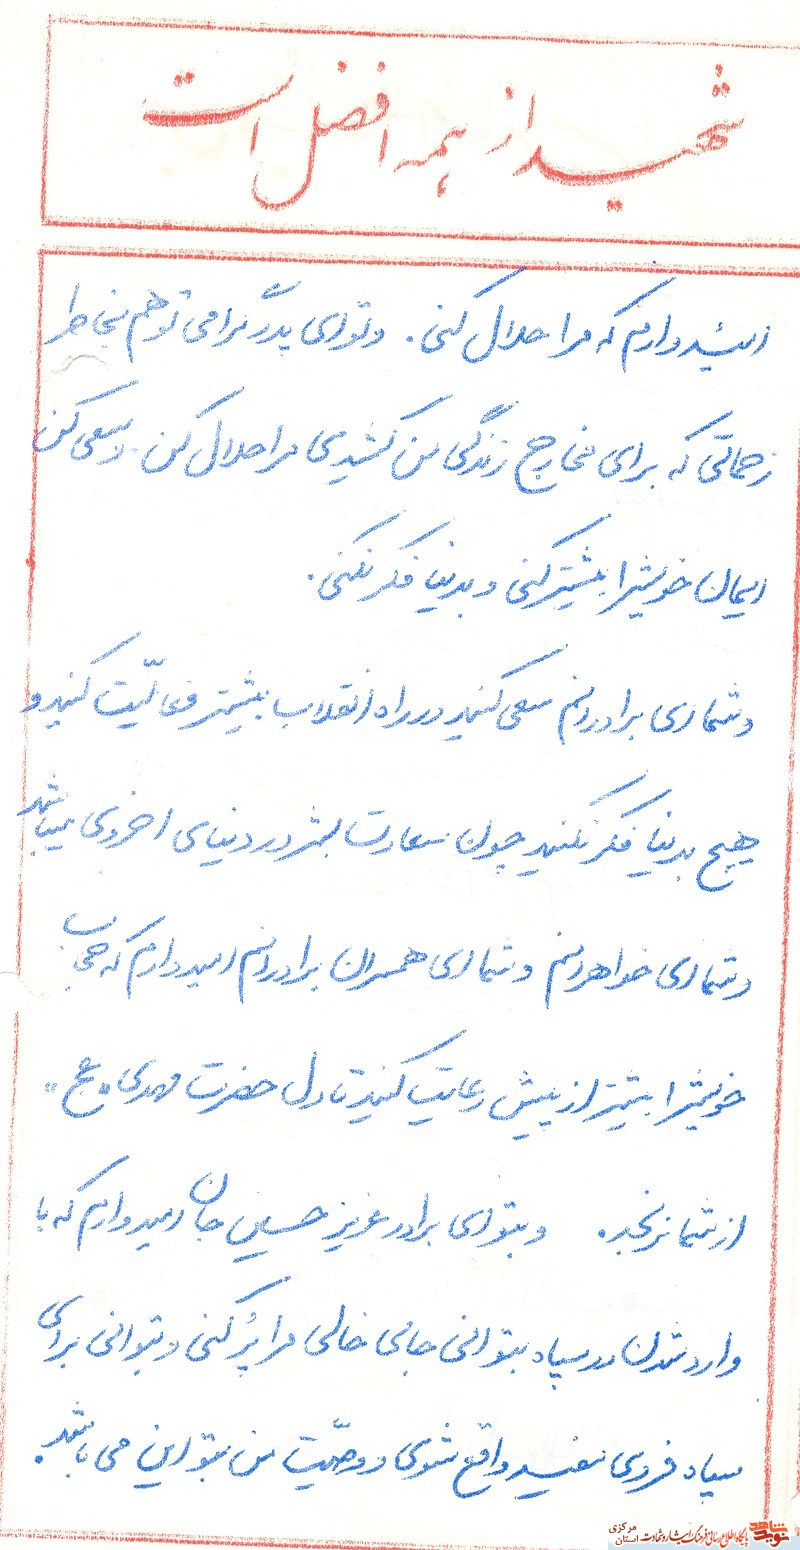 شهید از همه افضل است
امیدوارم که مرا حلال کنی. و تو ای پدر گرامی تو هم بخاطر
زحماتی که برای مخارج زندگی من کشیدی مرا حلال کن. و سعی کن
ایمان خویش را بیشتر کنی و بدنیا فکر نکنی.
و شما ای برادرانم سعی کنید در راه انقلاب بیشتر فعالیّت کنید و
هیچ بدنیا فکر نکنید چون سعادت بشر در دنیای اخروی میباشد
و شما ای خواهرانم و شما ای همسران برادرانم امیدوارم که حجاب
خویش را بیشتر از پیش رعایت کنید تا دل حضرت مهدی «عج»
از شما نرنجد. و بتو ای برادر عزیز حسین جان امیدوارم که با
وارد شدن در سپاه بتوانی جای خالی مرا پُر کنی و بتوانی برای
سپاه فردی مفید واقع شوی و وصیّت من بتو این می باشد.
نوید شاهد
پایگاه اطلاع رسانی فرهنگ ایثار و شهادت
استان مرکزی